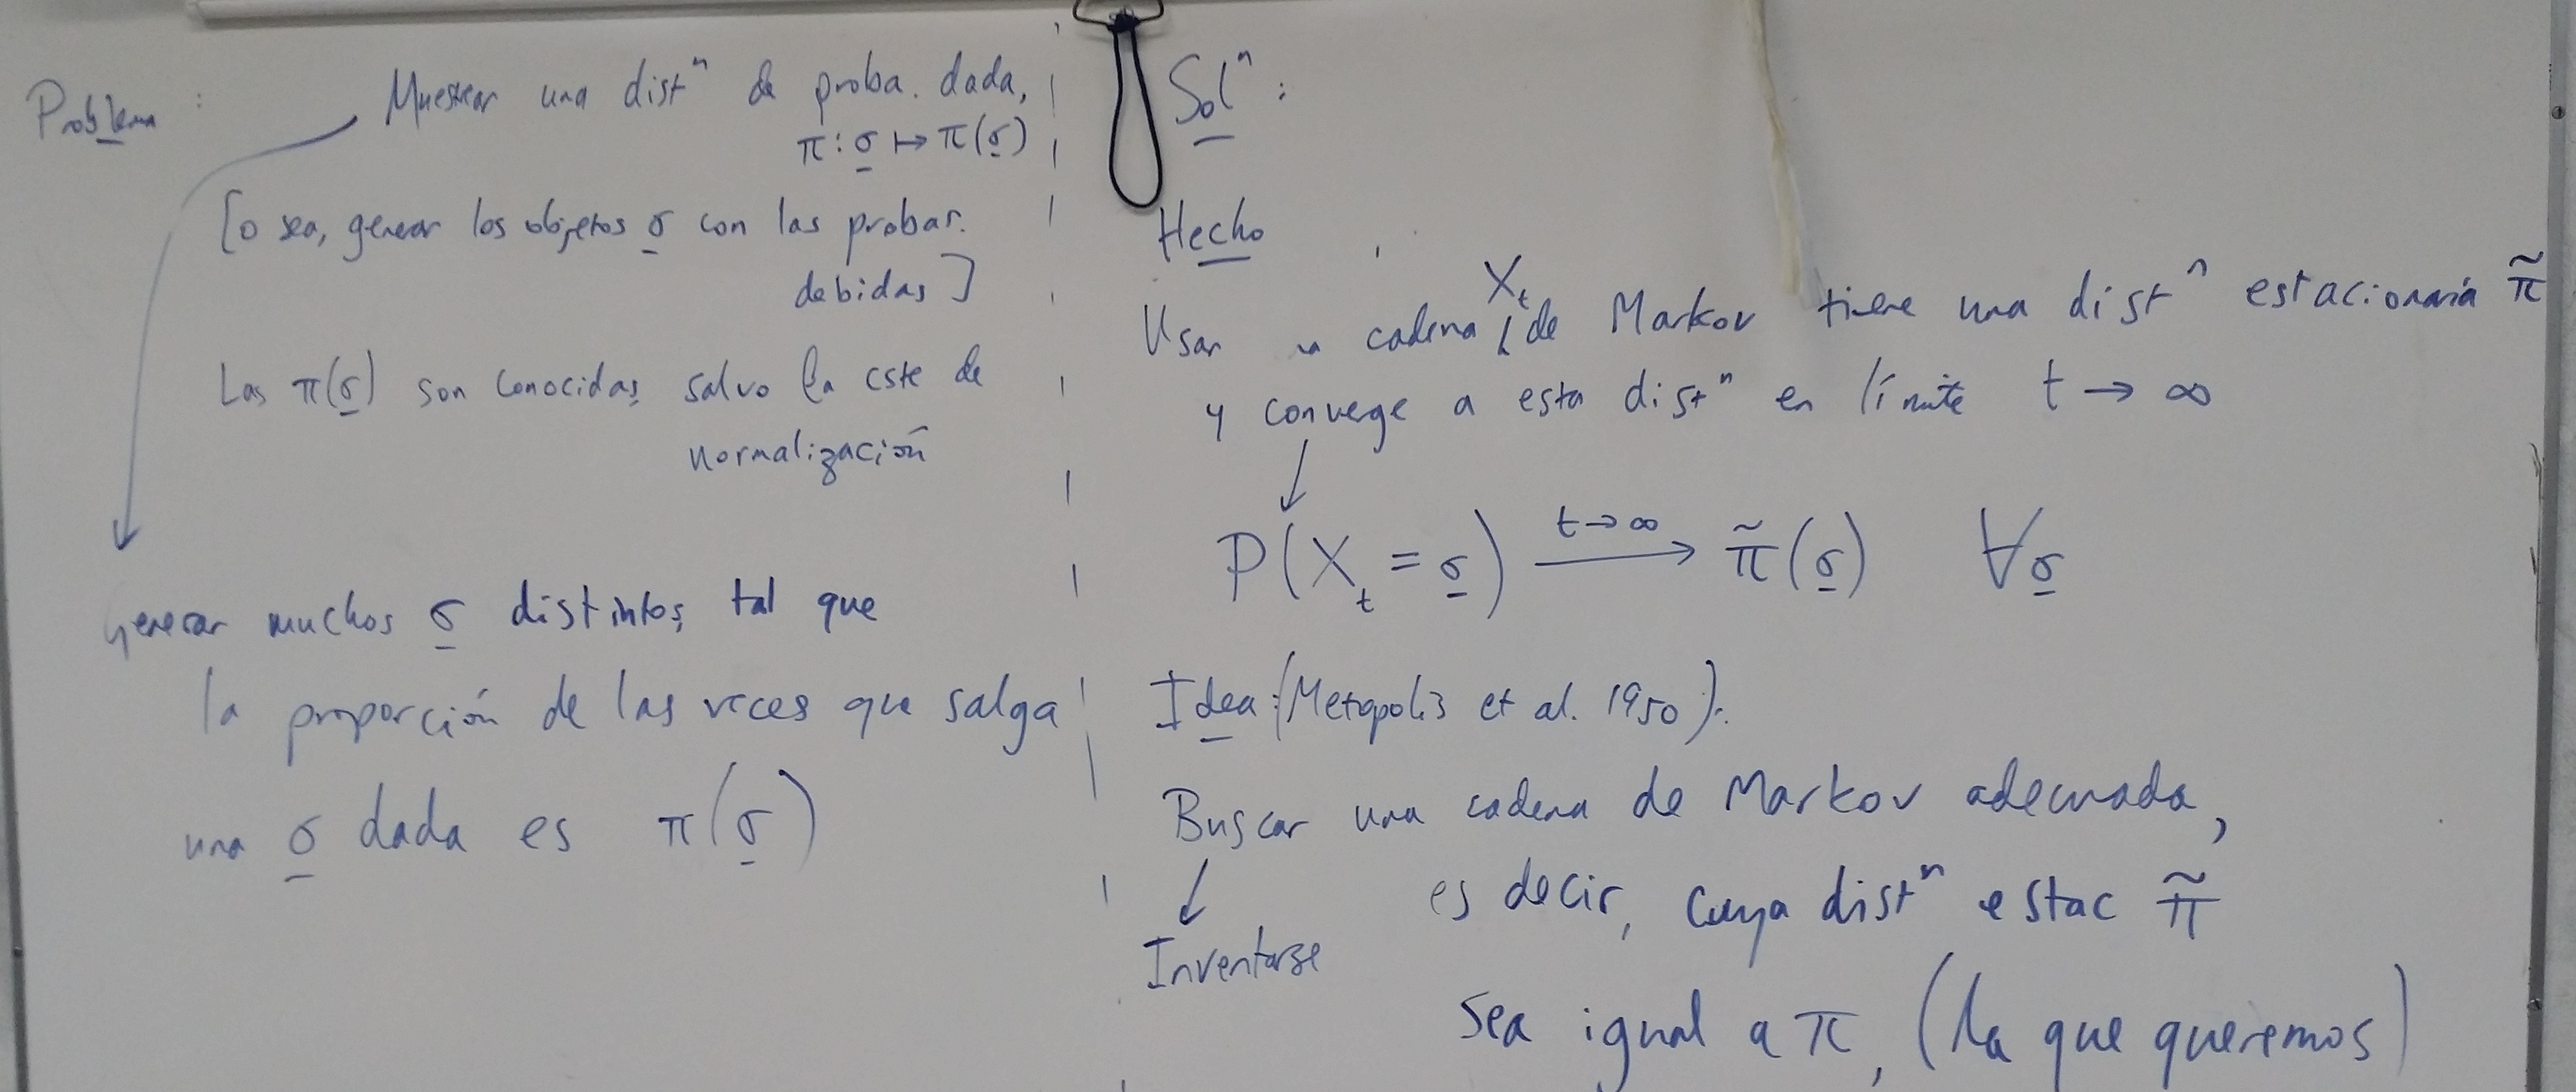 Problema :
Muestrear una distⁿ de proba. dada,
π : σ ↦ π(σ)
[o sea, generar los objetos σ con las probas.
debidas]
Las π(σ) son conocidas, salvo la cste de
normalización
generar muchos σ distintos, tal que
la proporción de las veces que salga
una σ dada es π(σ)
Solⁿ :
Hecho
Usar cadena X_t de Markov tiene una distⁿ estacionaria π̃
y converge a esta distⁿ en límite t → ∞
P(X_t = σ) —t→∞→ π̃(σ) ∀σ
Idea: (Metropolis et al. 1950).
Buscar una cadena de Markov adecuada,
es decir, cuya distⁿ estac π̃
Inventarse
sea igual a π, (la que queremos)